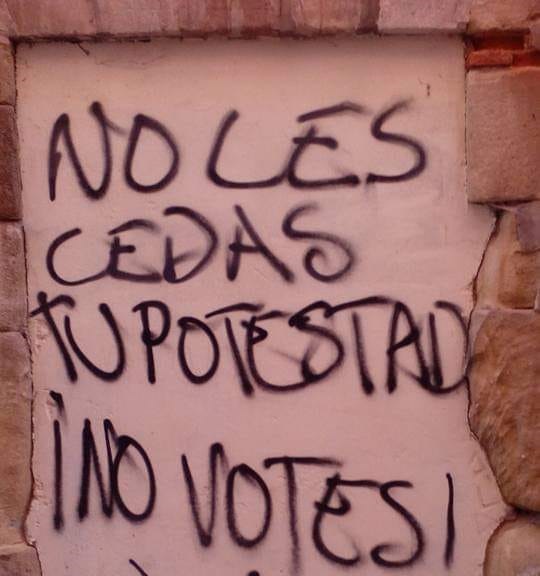 NO LES
CEDAS
TU POTESTAD
¡NO VOTES!